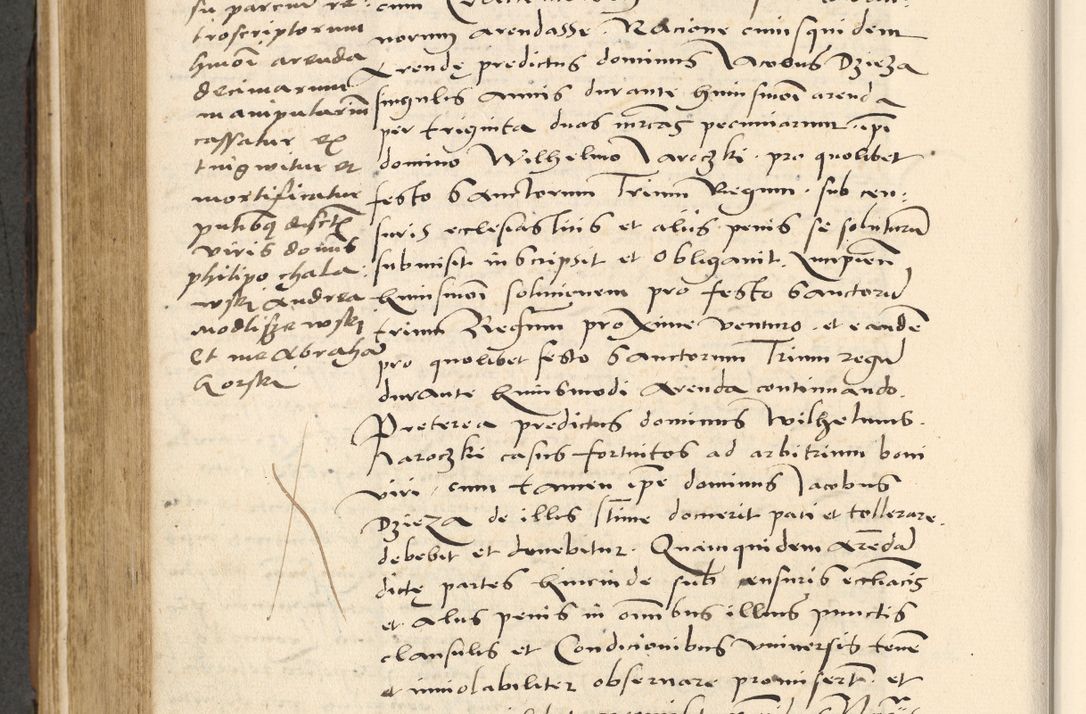 troscriptorum
hmoi arenda
decimarum
manipularium
cassatur ex
tingwitur et
mortificatur
viris domis
philipo chala
wski Andrea
Modlischewski
Et me Abraha
Gorski
norum arendasse. Racione cuiusquidem
Arendę predictus dominus Jacobus Dzieza
singulis annis durante huiusmoi arenda
per triginta duas mrcas pecuniarum ipi
domino Wilhelmo Jaroczki. pro quolibet
festo Sanctorum Trium Regum. sub cen-
suris ecclesiasticis et aliis penis se soluturu
submisit inscripsit et obligavit. Incipien
huiusmoi solucionem pro festo Sanctoru
trium Regum proxime venturo. et eande
pro quolibet festo Sanctorum Trium regu
durante huiusmodi Arenda continuando.
Preterea predictus dominus Wilhelmus.
Jaroczki casus fortuitos ad arbitrium boni
viri, cum tamen ipe dominus Jacobus
Dzieza de illis stime docuerit pati et tollerare.
debebit et tenebitur. Quamquidem Arenda
dictę partes hincinde sub censuris ecctiacis
et aliis penis in omibus illius punctis
clausulis et Condicionibus universis tene
et inviolabiliter observare promisert. et